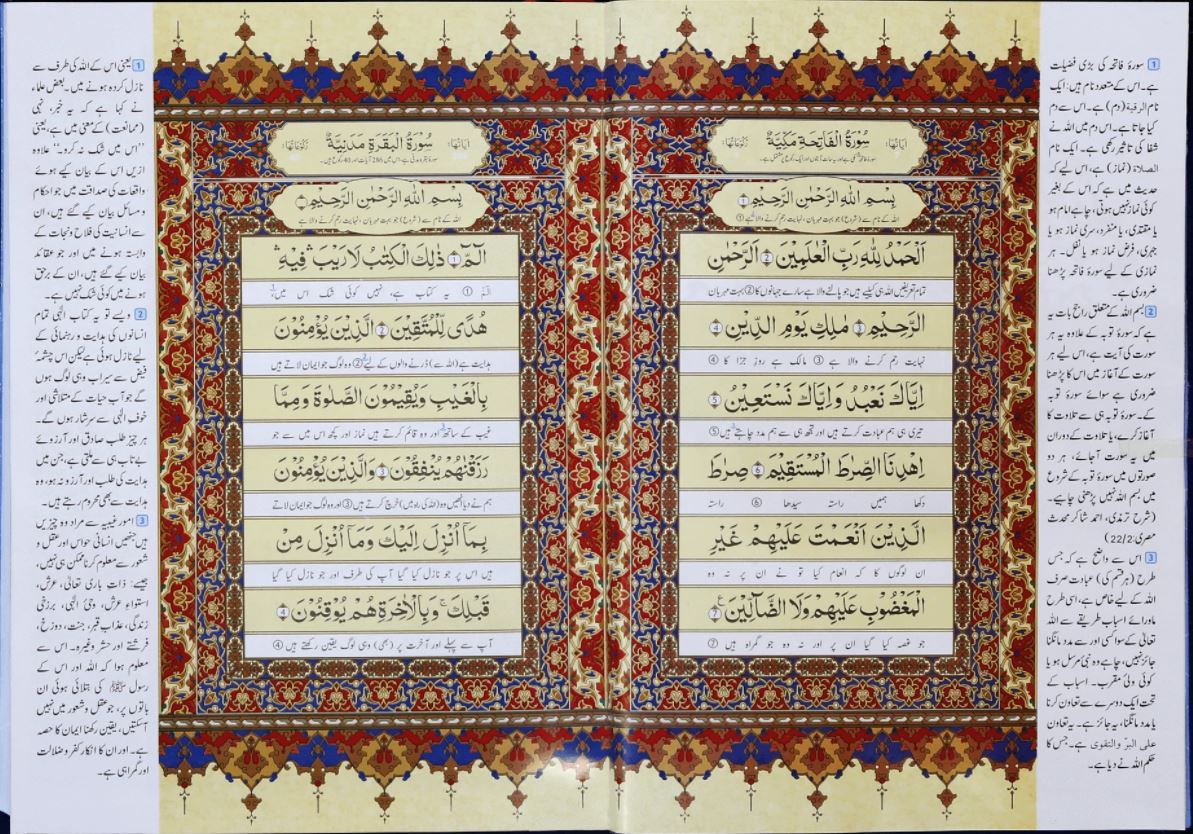 سُوْرَةُ الْفَاتِحَةِ مَكِّيَّةٌ
بِسْمِ اللّٰهِ الرَّحْمٰنِ الرَّحِيْمِ ۝1
اللہ کے نام سے (شروع) جو بہت مہربان، نہایت رحم کرنے والا ہے ①
اَلْحَمْدُ لِلّٰهِ رَبِّ الْعٰلَمِيْنَ ۝2 الرَّحْمٰنِ
تمام تعریفیں اللہ ہی کیلیے ہیں جو پالنے والا ہے سارے جہانوں کا ② بہت مہربان
الرَّحِيْمِ ۝3 مٰلِكِ يَوْمِ الدِّيْنِ ۝4
نہایت رحم کرنے والا ہے ③ مالک ہے روزِ جزا کا ④
اِيَّاكَ نَعْبُدُ وَاِيَّاكَ نَسْتَعِيْنُ ۝5
تیری ہی ہم عبادت کرتے ہیں اور تجھ ہی سے ہم مدد چاہتے ہیں ⑤
اِهْدِنَا الصِّرَاطَ الْمُسْتَقِيْمَ ۝6 صِرَاطَ
دکھا ہمیں راستہ سیدھا ⑥ راستہ
الَّذِيْنَ اَنْعَمْتَ عَلَيْهِمْ غَيْرِ
ان لوگوں کا کہ انعام کیا تو نے ان پر نہ وہ
الْمَغْضُوْبِ عَلَيْهِمْ وَلَا الضَّآلِّيْنَ ۝7
جو غصہ کیا گیا ان پر اور نہ وہ جو گمراہ ہیں ⑦
1 سورۂ فاتحہ کی بڑی فضیلت
ہے۔ اس کے متعدد نام ہیں: ایک
نام الرقیۃ (دم) ہے۔ اس سے دم
کیا جاتا ہے۔ اس دم میں اللہ نے
شفا کی تاثیر رکھی ہے۔ ایک نام
الصلاۃ (نماز) ہے، اس لیے کہ
حدیث میں ہے کہ اس کے بغیر
کوئی نماز نہیں ہوتی، چاہے امام ہو
یا مقتدی، یا منفرد، سری نماز ہو یا
جہری، فرض نماز ہو یا نفل۔ ہر
نمازی کے لیے سورۂ فاتحہ پڑھنا
ضروری ہے۔
2 بسم اللہ کے متعلق راجح بات یہ
ہے کہ سورۂ توبہ کے علاوہ یہ ہر
سورت کی آیت ہے، اس لیے ہر
سورت کے آغاز میں اس کا پڑھنا
ضروری ہے سوائے سورۂ توبہ
کے۔ سورۂ توبہ ہی سے تلاوت کا
آغاز کرے، یا تلاوت کے دوران
میں یہ سورت آجائے، ہر دو
صورتوں میں سورۂ توبہ کے شروع
میں بسم اللہ نہیں پڑھنی چاہیے۔
(شرح ترمذی، احمد شاکر محدث
مصری: 22/2)
3 اس سے واضح ہے کہ جس
طرح (ہر قسم کی) عبادت صرف
اللہ کے لیے خاص ہے، اسی طرح
ماورائے اسباب طریقے سے اللہ
تعالیٰ کے سوا کسی اور سے مدد مانگنا
جائز نہیں، چاہے وہ نبیِ مرسل ہو یا
کوئی ولیِ مقرب۔ اسباب کے
تحت ایک دوسرے سے تعاون کرنا
یا مدد مانگنا، یہ جائز ہے۔ یہ تعاون
علی البرّ والتقوی ہے۔ جس کا
حکم اللہ نے دیا ہے۔
سُوْرَةُ الْبَقَرَةِ مَدَنِيَّةٌ
بِسْمِ اللّٰهِ الرَّحْمٰنِ الرَّحِيْمِ
اللہ کے نام سے (شروع) جو بہت مہربان، نہایت رحم کرنے والا ہے
الٓمّٓ ۝1 ذٰلِكَ الْكِتٰبُ لَا رَيْبَ ۛ فِيْهِ ۛ
الٓمٓ ① یہ کتاب ہے، نہیں کوئی شک اس میں،
هُدًى لِّلْمُتَّقِيْنَ ۝2 الَّذِيْنَ يُؤْمِنُوْنَ
ہدایت ہے (اللہ سے) ڈرنے والوں کے لیے ② وہ لوگ جو ایمان لاتے ہیں
بِالْغَيْبِ وَيُقِيْمُوْنَ الصَّلٰوةَ وَمِمَّا
غیب کے ساتھ اور وہ قائم کرتے ہیں نماز اور کچھ اس میں سے جو
رَزَقْنٰهُمْ يُنْفِقُوْنَ ۝3 وَالَّذِيْنَ يُؤْمِنُوْنَ
ہم نے دیا انھیں وہ (اللہ کی راہ میں) خرچ کرتے ہیں ③ اور وہ لوگ جو ایمان لاتے
بِمَآ اُنْزِلَ اِلَيْكَ وَمَآ اُنْزِلَ مِنْ
ہیں اس پر جو نازل کیا گیا آپ کی طرف اور جو نازل کیا گیا
قَبْلِكَ ۚ وَبِالْاٰخِرَةِ هُمْ يُوْقِنُوْنَ ۝4
آپ سے پہلے اور آخرت پر (بھی) وہی لوگ یقین رکھتے ہیں ④
1 یعنی اس کے اللہ کی طرف سے
نازل کردہ ہونے میں۔ بعض علماء
نے کہا ہے کہ یہ خبر، نہی
(ممانعت) کے معنی میں ہے، یعنی
"اس میں شک نہ کرو۔" علاوہ
ازیں اس کے بیان کیے ہوئے
واقعات کی صداقت میں جو احکام
و مسائل بیان کیے گئے ہیں، ان
سے انسانیت کی فلاح و نجات کے
وابستہ ہونے میں اور جو عقائد
بیان کیے گئے ہیں، ان کے برحق
ہونے میں کوئی شک نہیں ہے۔
2 ویسے تو یہ کتاب الٰہی تمام
انسانوں کی ہدایت و رہنمائی کے
لیے نازل ہوئی ہے لیکن اس چشمۂ
فیض سے سیراب وہی لوگ ہوں
گے جو آب حیات کے متلاشی اور
خوفِ الٰہی سے سرشار ہوں گے۔
ہر چیز طلب صادق اور آرزوئے
بے تاب ہی سے ملتی ہے، جن میں
ہدایت کی طلب اور آرزو نہ ہو، وہ
ہدایت سے بھی محروم رہتے ہیں۔
3 امور غیبیہ سے مراد وہ چیزیں
ہیں جنھیں انسانی حواس اور عقل و
شعور سے معلوم کرنا ممکن ہی نہیں،
جیسے: ذات باری تعالیٰ، عرش،
استواءِ عرش، وحیِ الٰہی، برزخی
زندگی، عذاب قبر، جنت، دوزخ،
فرشتے اور حشر وغیرہ۔ اس سے
معلوم ہوا کہ اللہ اور اس کے
رسول ﷺ کی بتلائی ہوئی ان
باتوں پر، جو عقل و شعور میں نہیں
آسکتیں، یقین رکھنا ایمان کا حصہ
ہے۔ اور ان کا انکار کفر و ضلالت
اور گمراہی ہے۔